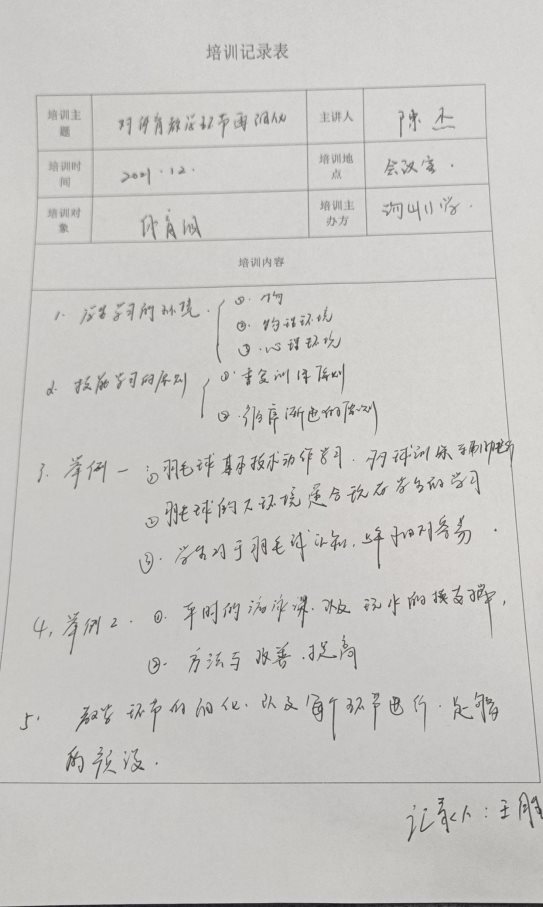 培训记录表
培训主题 对体育教学环节再细化 主讲人 陈杰
培训时间 2021.12. 培训地点 会议室.
培训对象 体育组 培训主办方 河山小学.
培训内容
1. 学习的环境. ①.
②. 物理环境
③. 心理环境
2. 技能学习的原则 ①. 重复训练原则
②. 循序渐进的原则
3. 举例一 ① 羽毛球基本技术动作学习.
② 羽毛球的大环境适合现在学生的学习
③. 学生对于羽毛球认知, 容易.
4. 举例2. ①. 平时的游泳课.
②. 方法与改善.提高
5. 教学环节的细化. 以及每个环节进行. 足够
的预设.
记录人: 王胜